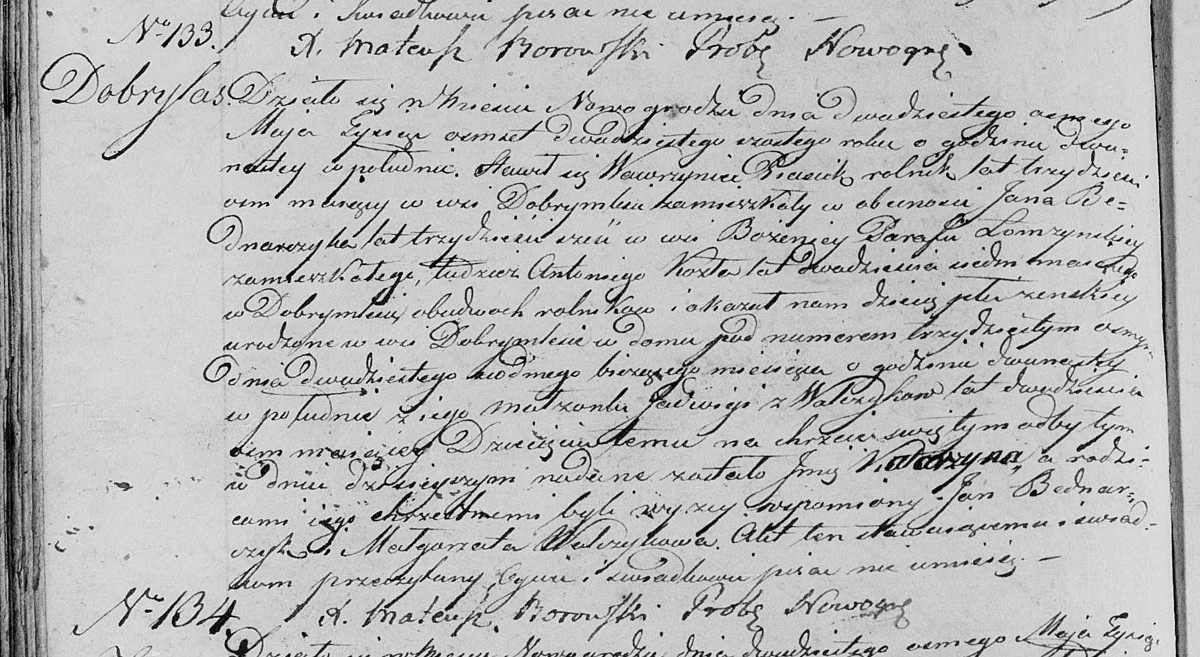 Ojciec i Świadkowie pisac nie umieią. —
No 133. X. Mateusz Borowski Probo Nowogro
Dobrylas. Działo się w Mieście Nowogrodzie dnia dwudziestego osmego
Maja Tysiąc osmset dwudziestego szostego roku o godzinie dwu-
nastey w południe. Stawił się Wawrzyniec Ptasik rolnik lat trzydzieści
osm maiący w wsi Dobrymlesie zamieszkały w obecności Jana Be-
dnarczyka lat trzydzieści sześć w wsi Bożenicy Parafii Łomżynskiey
zamieszkałego, tudzież Antoniego Kozła lat dwadzieścia siedm maiącego
w Dobrymlesie, obudwoch rolnikow i okazał nam dziecię płci żenskiey
urodzone w wsi Dobrymlesie w domu pod numerem trzydziestym osmym
dnia dwudziestego siodmego bieżącego miesiąca o godzinie dwunastey
w południe z iego małżonki Jadwigi z Walczykow lat dwadzieścia
osm maiącey Dziecięciu temu na chrzcie świętym odbytym
w dniu dzisieyszym nadane zostało Imię Katarzyna, a rodzi-
cami iego chrzestnemi byli wyżey wspomniony Jan Bednar-
czyk i Małgorzata Walczykowa. Akt ten stawaiącemu i swiad-
kom przeczytany Oyciec i swiadkowie pisac nie umieią. —
No 134. X. Mateusz Borowski Probo Nowogro
Działo się w Mieście Nowogrodzie dnia dwudziestego osmego Maja Tysiąc